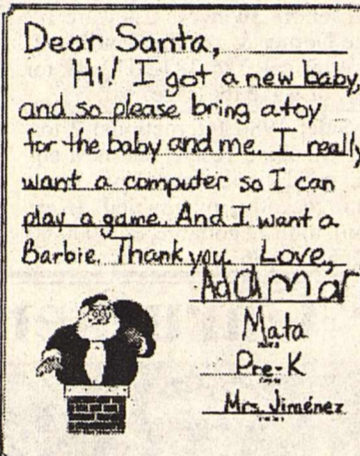 Dear Santa,
Hi! I got a new baby,
and so please bring a toy
for the baby and me. I really
want a computer so I can
play a game. And I want a
Barbie. Thank you. Love,
Addimar
Mata
Pre-K
Mrs. Jiménez